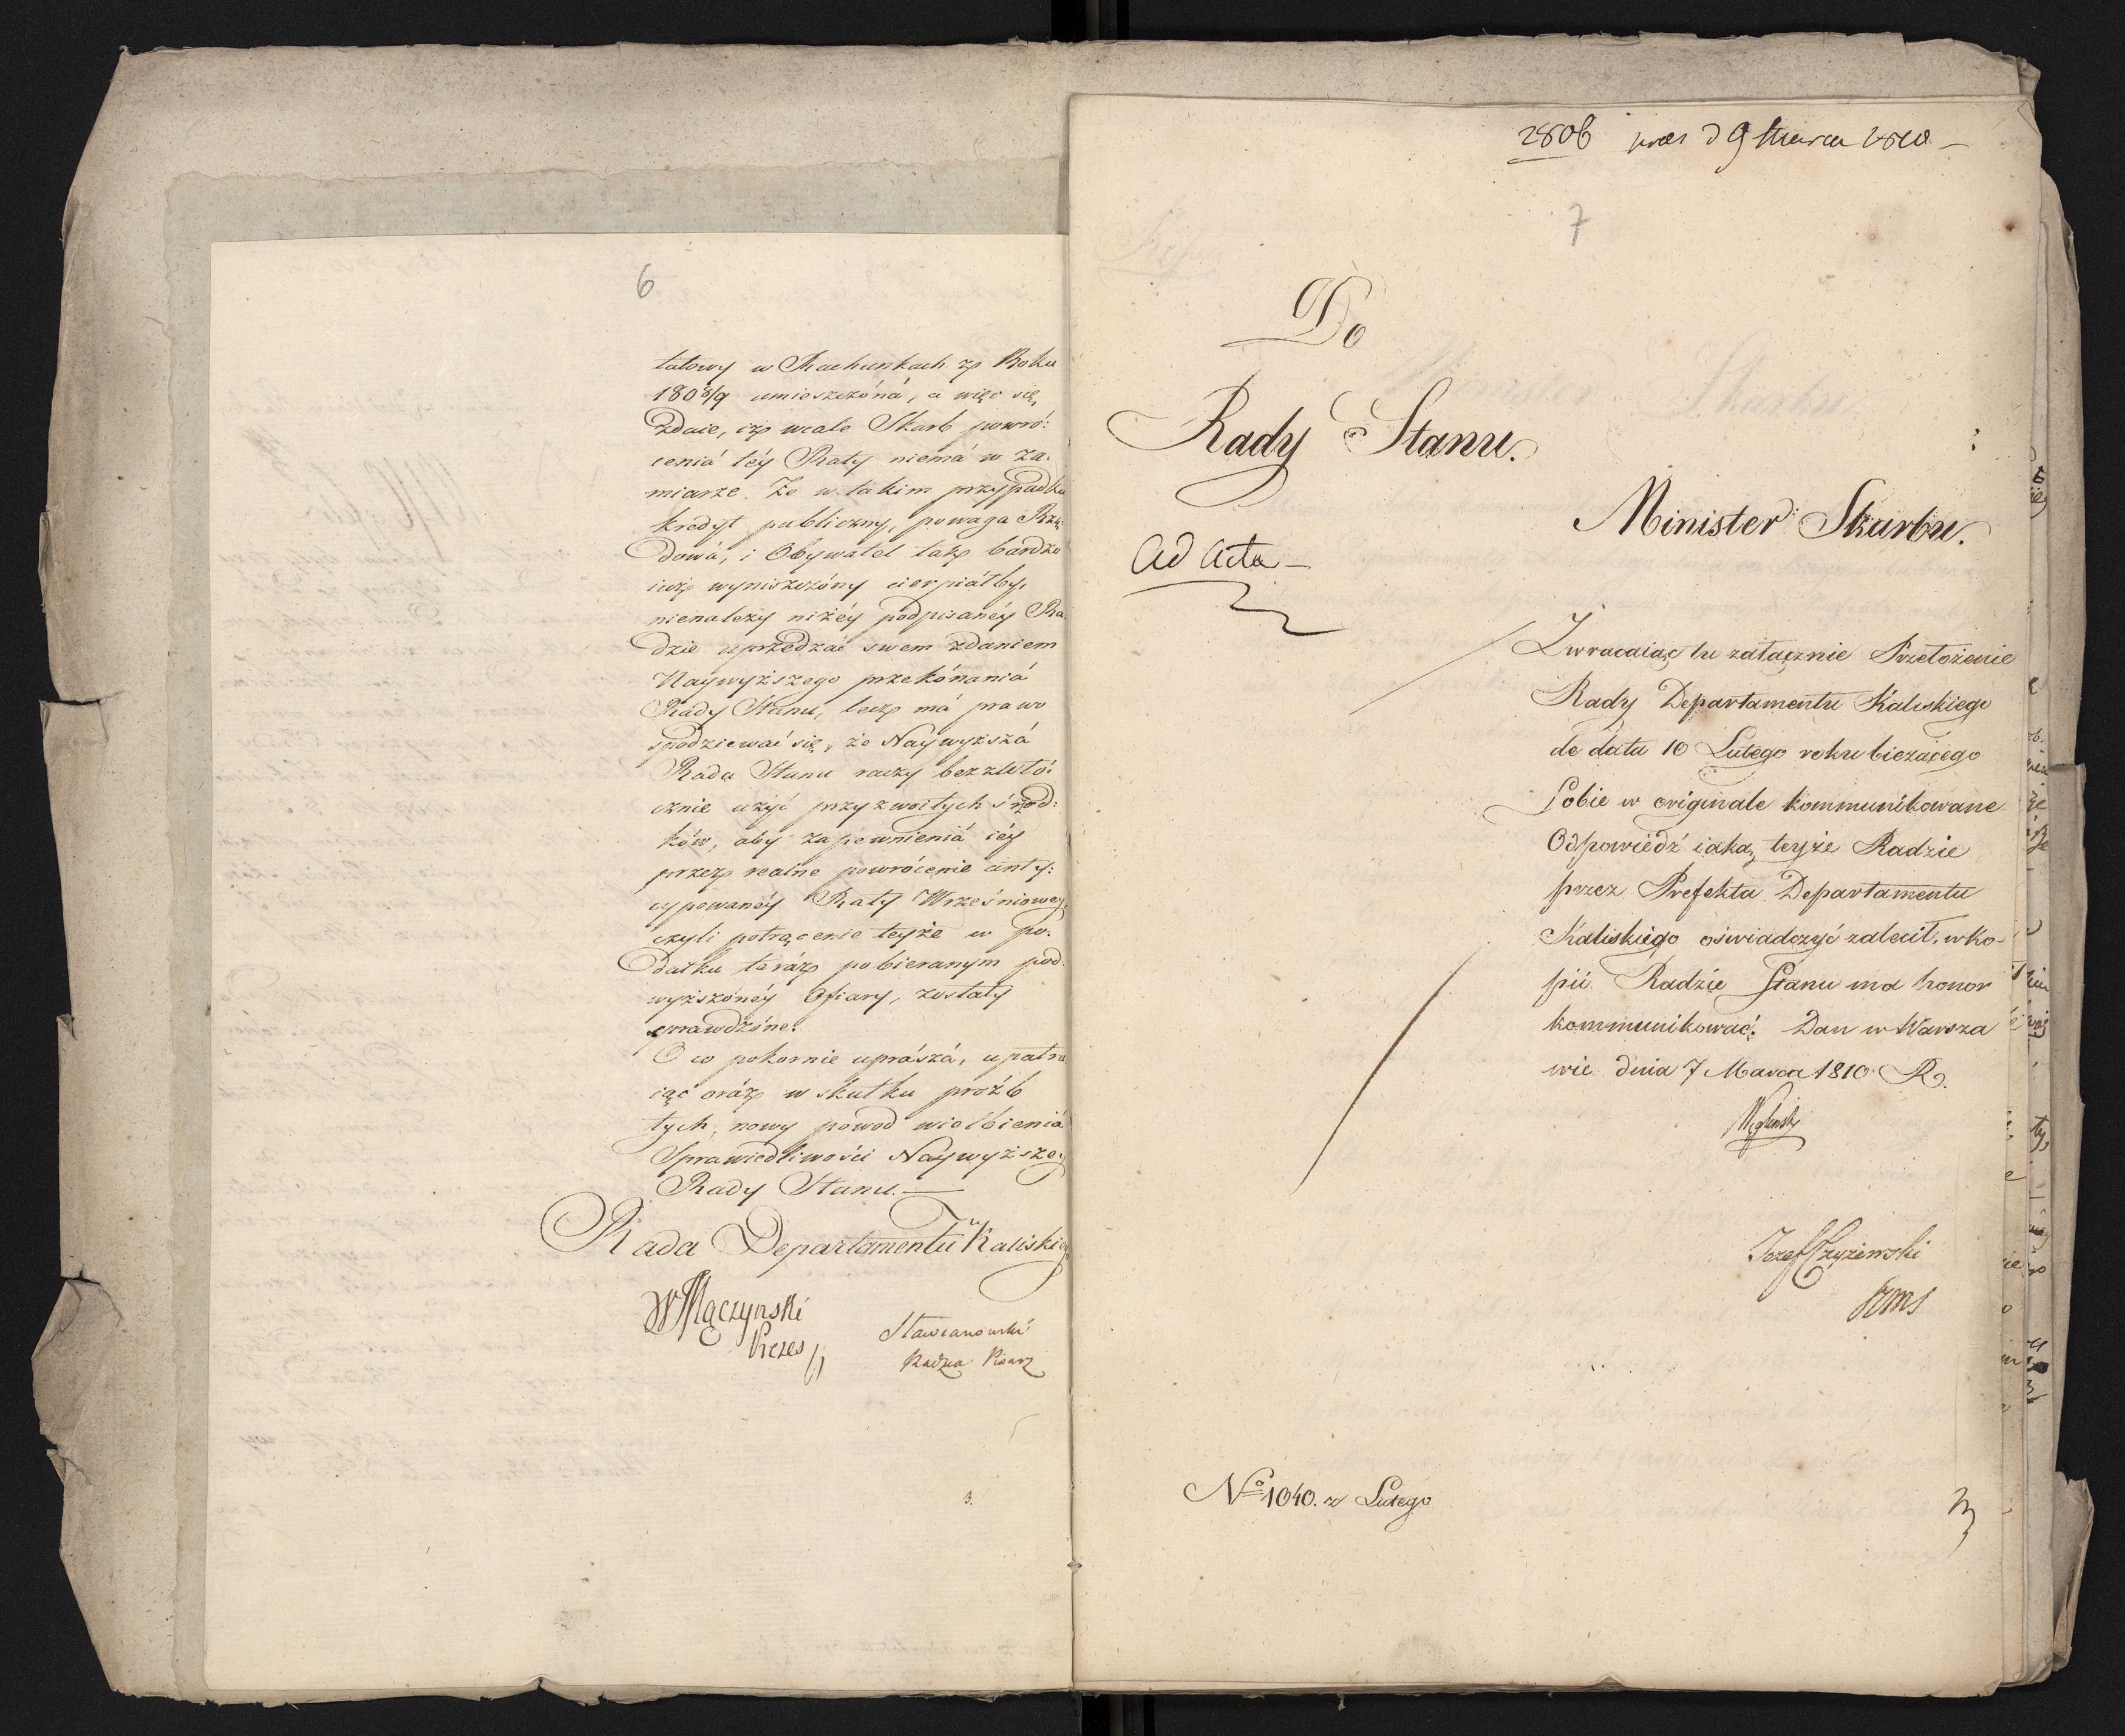 6
tatowy w Rachunkach z Roku
180 8/9 umieszczóná, a więc się,
zdaie, iż wcale Skarb powró:
cenia téy Raty niemá w za:
miarze. Że w takim przypadku
kredyt publiczny, powaga Rzą:
dowá, i Obywatel tak bardzo
iuż wyniszczóny cierpiáłby,
nienależy niżéy podpisanéy Ra
dzie uprzedzać swem zdaniem
Naywyższego przekónaniá
Rady Stanu, lecz má prawo
spodziewać się, że Naywyższá
Rada Stanu raczy bezzwłó:
cznie użyć przyzwoitych śrzod:
ków, aby zapewnieniá iéy
przez realne powrócenie anty:
cypowanéy Raty Wrześniowey,
czyli potrącenie teyże w po:
datku teráz pobieranym pod:
wyższónéy Ofiary, zostały
sprawdzóne.
O co pokornie upraszá, upatru
iąc oráz w skutku próźb
tych, nowy powod wielbieniá
Sprawiedliwości Naywyższey
Rady Stanu.—
Rada Departamentu Kaliskieg
W Mączynski
Prezes
Stawianowski
Radzca Pisarz
3.
2806 prees d 9 Marca 1810 –
7
Do
Rady Stanu.
Minister Skarbu.
Ad Acta –
Zwracaiąc tu załącznie Przełożenie
Rady Departamentu Kaliskiego
de data 10 Lutego roku bieżącego
Sobie w originale kommunikowane
Odpowiedź iaką teyże Radzie
przez Prefekta Departamentu
Kaliskiego oświadczyć zalecił, w ko-
pii Radzie Stanu ma honor
kommunikować. Dan w Warsza
wie dnia 7 Marca 1810 R.
Węgleński
Jozef Czyżewski
N<sup>o</sup> 1040. z Lutego